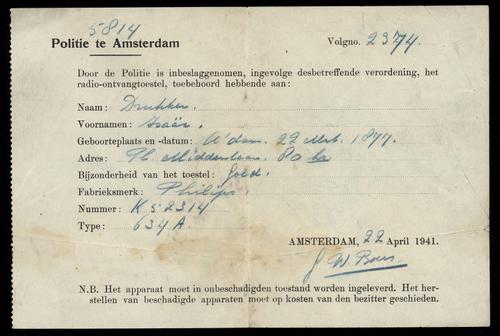 5814
Politie te Amsterdam
Volgno. 2374.
Door de Politie is inbeslaggenomen, ingevolge desbetreffende verordening, het
radio-ontvangtoestel, toebehoord hebbende aan:
Naam: Drukker.
Voornamen: Izaäk.
Geboorteplaats en -datum: A'dam. 22 1877.
Adres: Pl. Middenlaan. 80
Bijzonderheid van het toestel: Goed.
Fabrieksmerk: Philips.
Nummer: K 52314
Type: 634 A.
AMSTERDAM, 22 April 1941.
J W
N.B. Het apparaat moet in onbeschadigden toestand worden ingeleverd. Het her-
stellen van beschadigde apparaten moet op kosten van den bezitter geschieden.